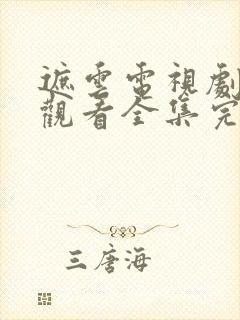 遮雲電視劇
觀看全集完
三唐海